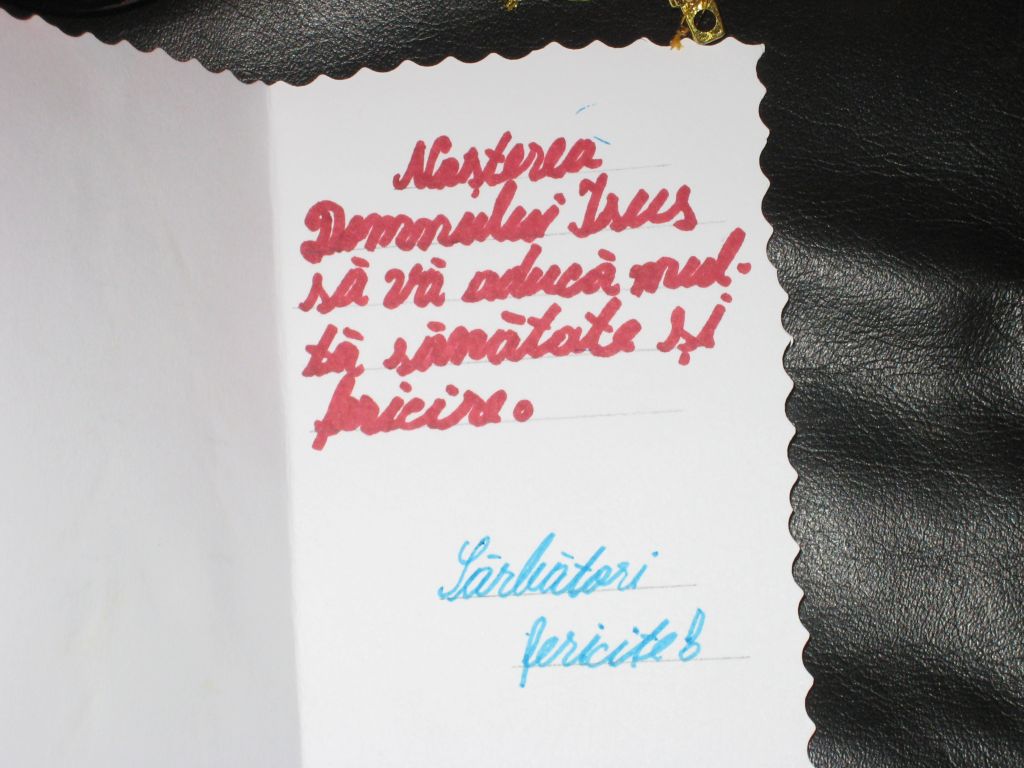 Nașterea
Domnului Isus
să vă aducă mul-
tă sănătate și
fericire.
Sărbători
fericite!